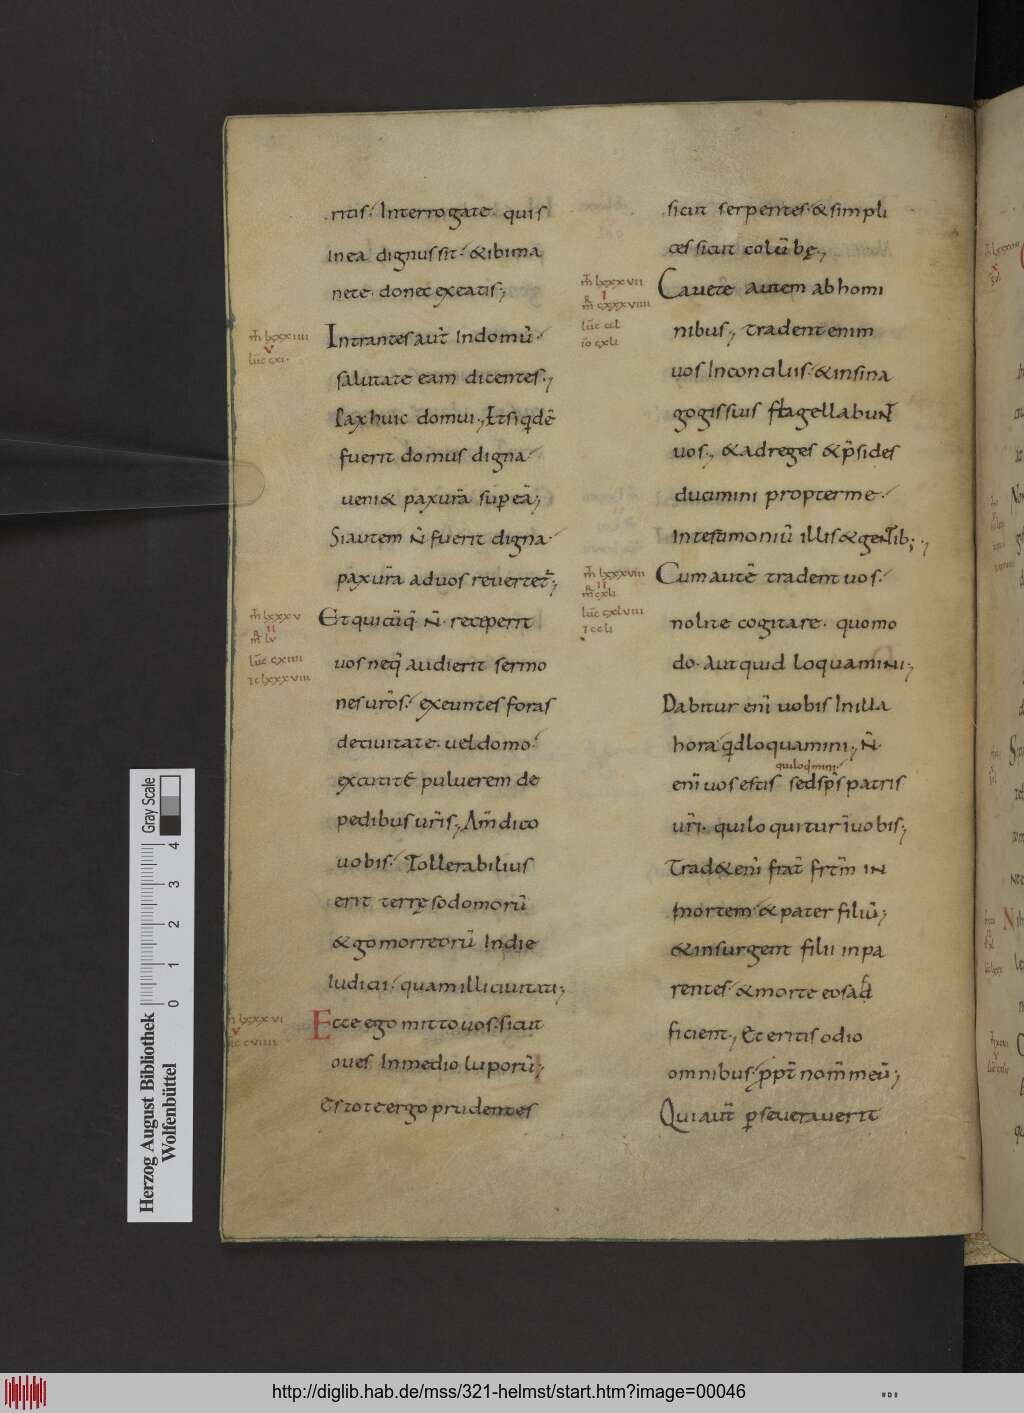 ritis. Interrogate. quis
in ea dignus sit. & ibi ma
nete. donec exeatis;
m̄ lxxxiiii
v
luc cxi.
Intrantes aut̄ In domū.
salutate eam dicentes.,
Pax huic domui., Et siq̄dē
fuerit domus digna
ueni& pax ur̄a sup eā;
Si autem N̄ fuerit digna.
pax ur̄a ad uos reuertet̄;
m̄ lxxxv
II
m̄ lv
luc cxiiii
lxxxviii
Et quicūq̄. N̄. receperit
uos neq̄ audierit sermo
nes ur̄os. exeuntes foras
de ciuitate. uel domo.
excutitE puluerem de
pedibus ur̄is, Am̄ dico
uobis. Tollerabilius
erit terrę sodomorū
& gomorreorū In die
Iudicii. quam illi ciuitati;
m̄ lxxxvi
v
luc cviiii
Ecce ego mitto uos. sicut
oues In medio luporū;
Estote ergo prudentes
sicut serpentes. & simpli
ces sicut colūbę.,
m̄ lxxxvii
I
m̄ cxxxviiii
luc ccl
io cxli
Cauete autem ab homi
nibus, tradent enim
uos In conciliis. & in sina
gogis suis flagellabuNT
uos., & ad reges & p̄sides
ducimini propter me.
In testimoniū illis & geNTib;.,
m̄ lxxxviii
II
m̄ cxli
luc cxlviii
ccli
Cum autē tradent uos.
nolite cogitare. quomo
do. Aut quid loquamINI;
Dabitur eni uobis In illa
hora q̄d loquamini;, N̄.
qui loq̄mini.
eni uos estis sed sp̄s patris
ur̄i. qui loquitur ī uobis;
Trad& eni frat̄ frt̄m IN
mortem. & pater filiū;
& insurgent filii in pa
rentes. & morte eos ad
ficient., Et eritis odio
omnibus. ppt̄ nom̄ meū;
Qui aut̄ pseuerauerit
Herzog August Bibliothek
Wolfenbüttel
0 1 2 3 4
Gray Scale
http://diglib.hab.de/mss/321-helmst/start.htm?image=00046